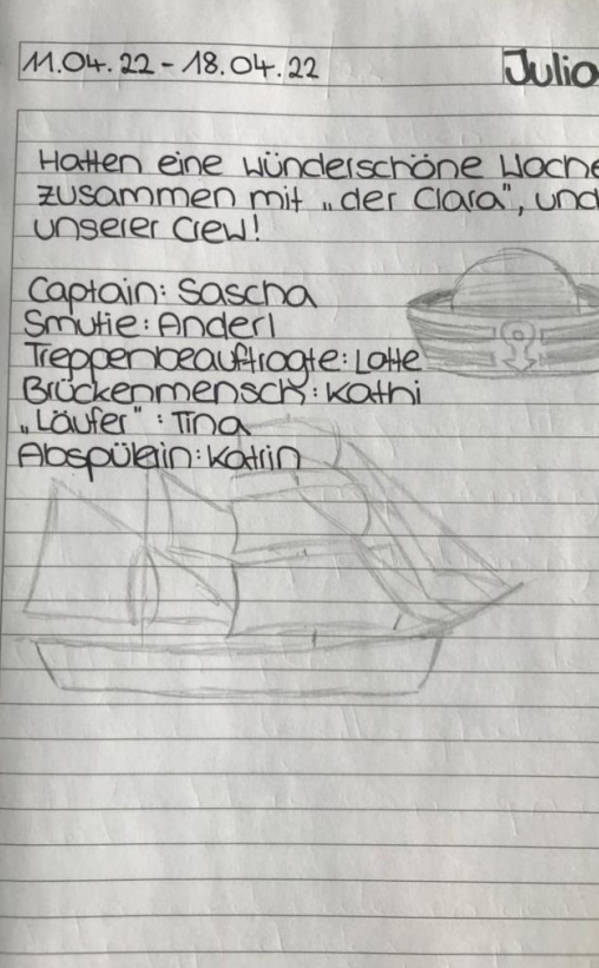 11.04.22 - 18.04.22 Julia
Hatten eine wünderschöne Woche
zusammen mit „der Clara", und
unserer Crew!
Captain: Sascha
Smutie: Anderl
Treppenbeauftragte: Lotte
Brückenmensch: Kathi
„Läufer" : Tina
Abspülerin: Katrin